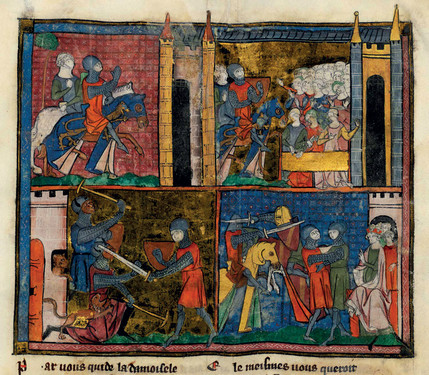 P ·ar vous quide la damoisele
E le meismes vous queroit